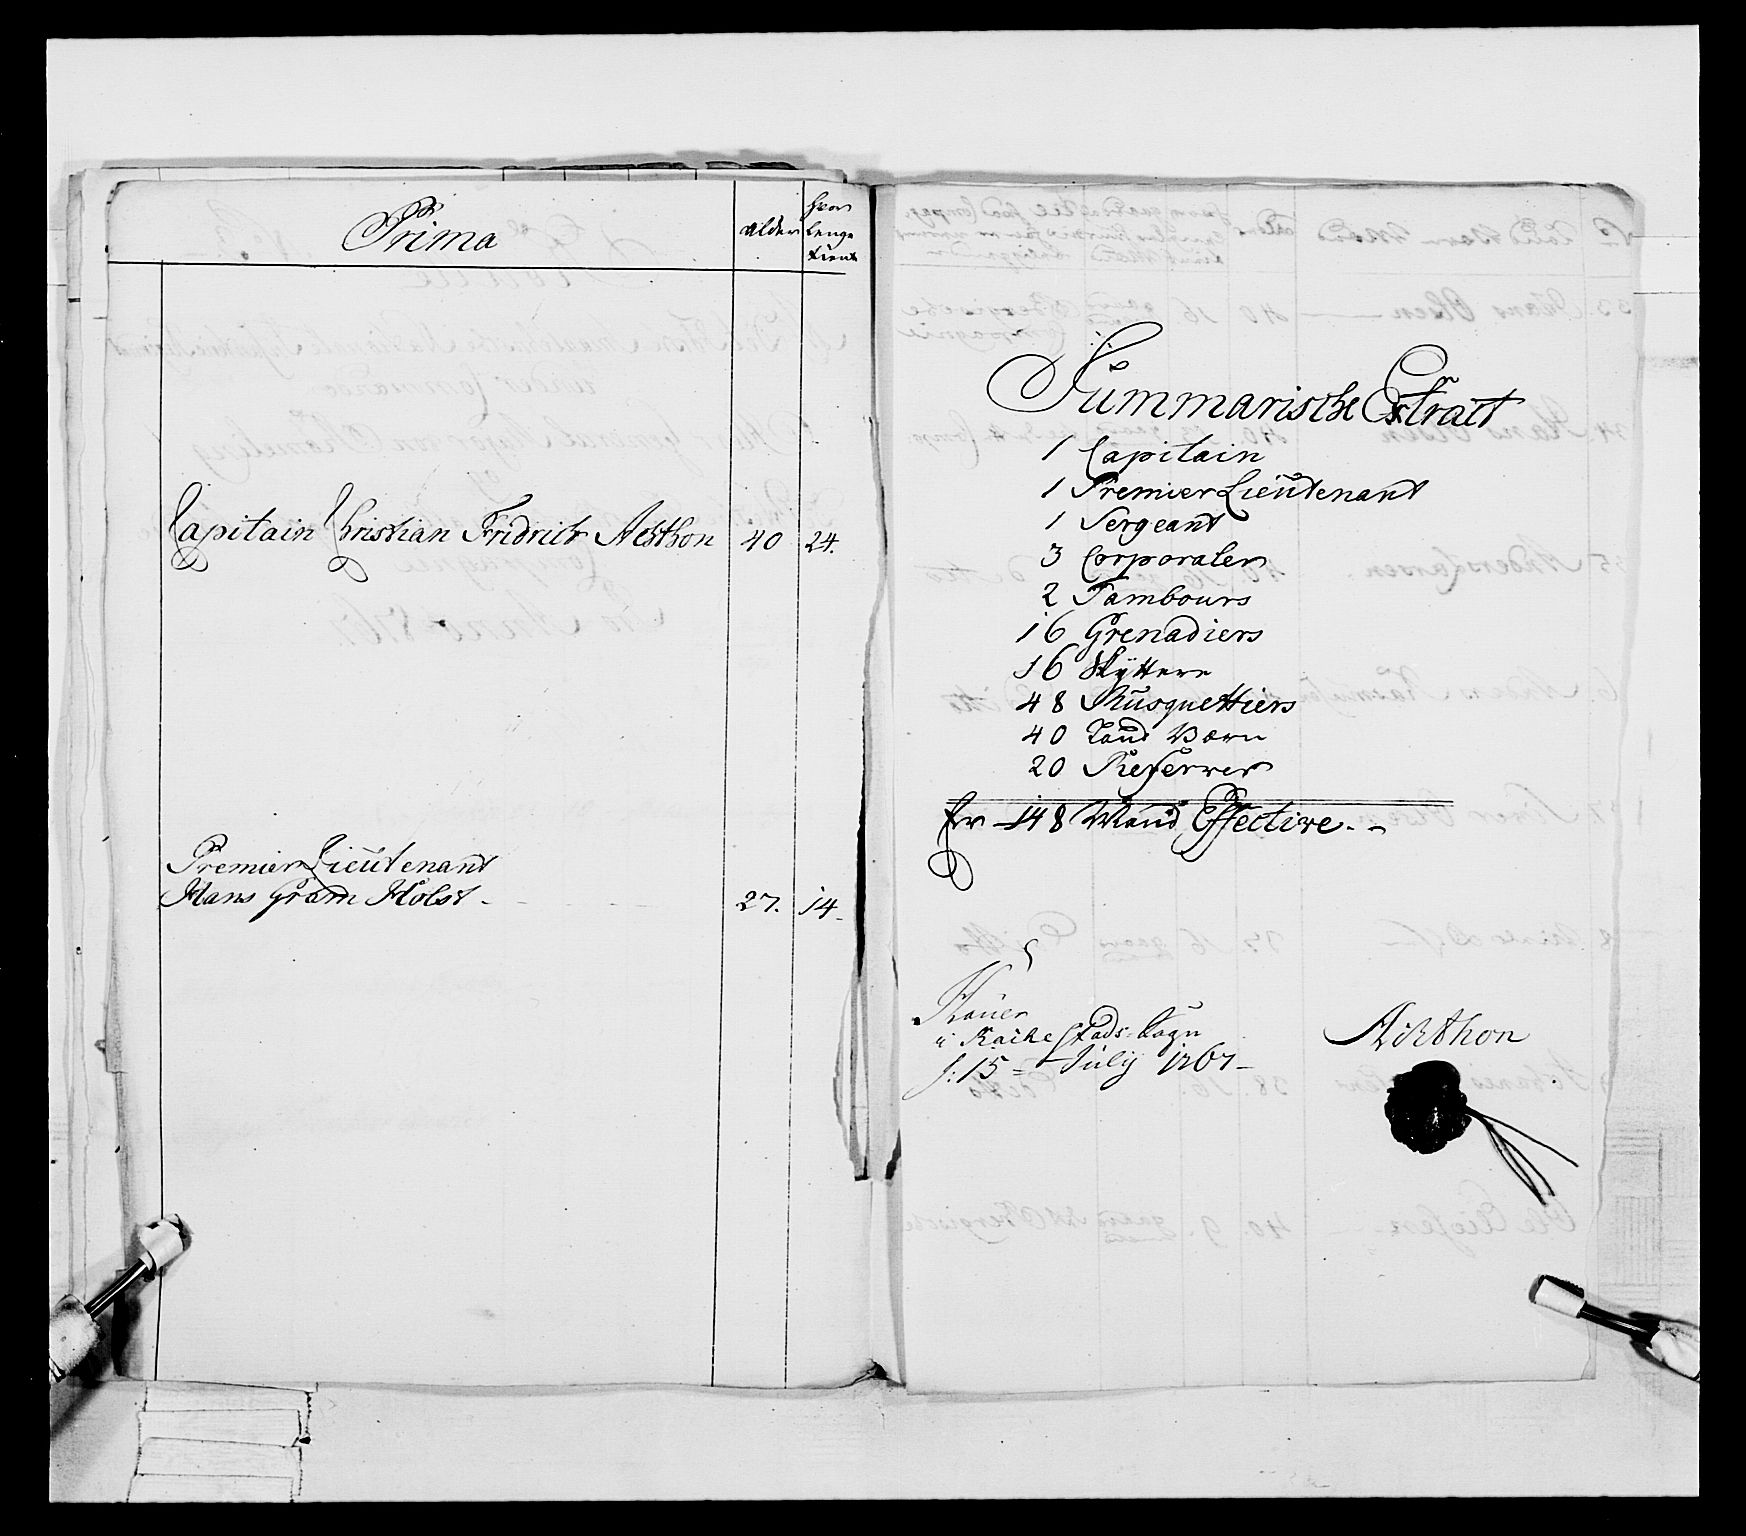 Prima
Alder
hvor
lenge
tient
Capitain Christian Fridrich Acthon 40 24.
Premier Lieütenant
Hans Gram Holst 27. 14
Summarische Extract
1 Capitain
1 Premier Lieütenant
1 Sergeant
3 Corporaler
2 Tambours
16 Grenadiers
16 Skÿttere
48 Müsquettiers
40 Land Værn
20 Reserver
Er 148 Mand Effective
Raüer
i Rachestads Sogn
d: 15 July 1767
Acthon